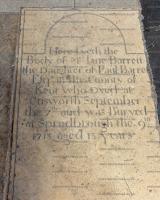 Here Lyeth the
Body of Mrs Jane Barrett
the Daughter of Paul Barret
Esqr in the County of
Kent who Dyed at
Cusworth September
the 7th and was Buryed
at Sprodbrough the 9th
1715 aged 15 years